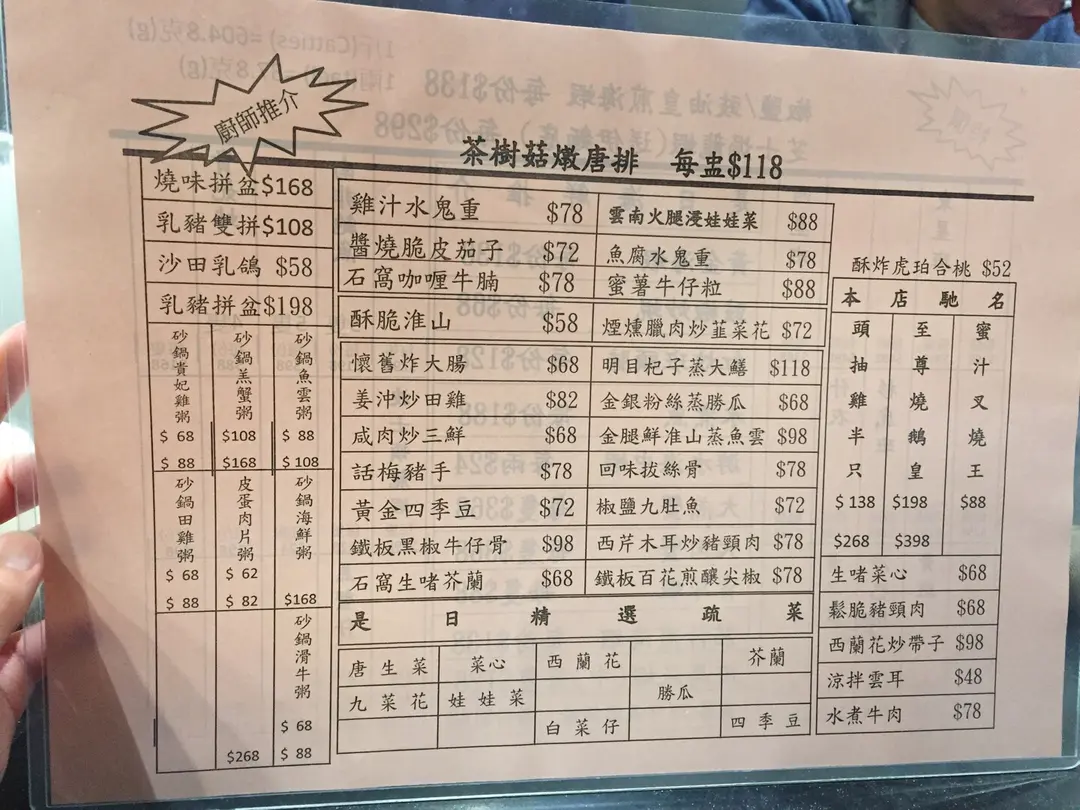 廚師推介
茶樹菇燉唐排 每盅$118
燒味拼盆$168
乳豬雙拼$108
沙田乳鴿 $58
乳豬拼盆$198
砂鍋貴妃雞粥 $ 68 $ 88
砂鍋羔蟹粥 $108 $168
砂鍋魚雲粥 $ 88 $ 108
砂鍋田雞粥 $ 68 $ 88
皮蛋肉片粥 $ 62 $ 82
砂鍋海鮮粥 $168
$268
砂鍋滑牛粥 $ 68 $ 88
雞汁水鬼重 $78
雲南火腿浸娃娃菜 $88
醬燒脆皮茄子 $72
魚腐水鬼重 $78
石窩咖喱牛腩 $78
蜜薯牛仔粒 $88
酥脆淮山 $58
煙燻臘肉炒韮菜花 $72
懷舊炸大腸 $68
明目杞子蒸大鱔 $118
姜沖炒田雞 $82
金銀粉絲蒸勝瓜 $68
咸肉炒三鮮 $68
金腿鮮淮山蒸魚雲 $98
話梅豬手 $78
回味拔絲骨 $78
黃金四季豆 $72
椒鹽九肚魚 $72
鐵板黑椒牛仔骨 $98
西芹木耳炒豬頸肉 $78
石窩生啫芥蘭 $68
鐵板百花煎釀尖椒 $78
是日精選疏菜
唐生菜 菜心 西蘭花 芥蘭
九菜花 娃娃菜 勝瓜
白菜仔 四季豆
酥炸虎珀合桃 $52
本店馳名
頭抽雞半只 $ 138 $268
至尊燒鵝皇 $198 $398
蜜汁叉燒王 $88
生啫菜心 $68
鬆脆豬頸肉 $68
西蘭花炒帶子 $98
涼拌雲耳 $48
水煮牛肉 $78